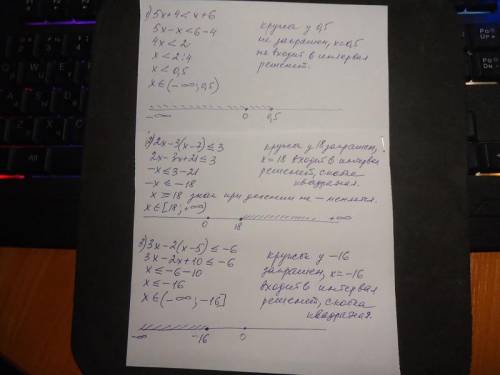 1) 5x+4<x+6
5x-x<6-4
4x<2
x<2:4
x<0,5
x∈(-∞;0,5)
кружок у 0,5
не закрашен, x=0,5
не входит в интервал
решений.
-∞ 0 0,5
2) 2x-3(x-7)≤3
2x-3x+21≤3
-x≤3-21
-x≤-18
x≥18 знак при делении на - меняется.
x∈[18;+∞)
кружок у 18 закрашен,
x=18 входит в интервал
решений, скобка
квадратная.
0 18 +∞
3) 3x-2(x-5)≤-6
3x-2x+10≤-6
x≤-6-10
x≤-16
x∈(-∞;-16]
кружок у -16
закрашен, x=-16
входит в интервал
решений, скобка
квадратная.
-∞ -16 0